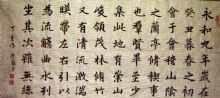 永和九年歲在
癸丑暮春之初
會于會稽山陰
之蘭亭脩稧事
也羣賢畢至少長咸
集此地有崇山峻
領茂林脩竹又有
清流激湍
暎帶左右引以
為流觴曲水列
坐其次雖無絲